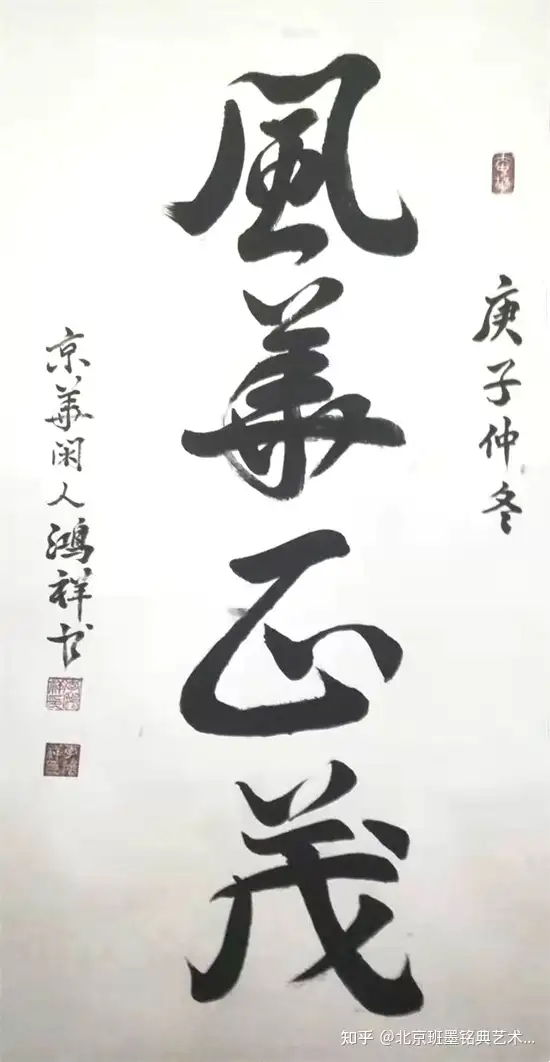 庚子仲冬
風華正茂
京華闲人鴻祥书
知乎 @北京班墨铭典艺术...